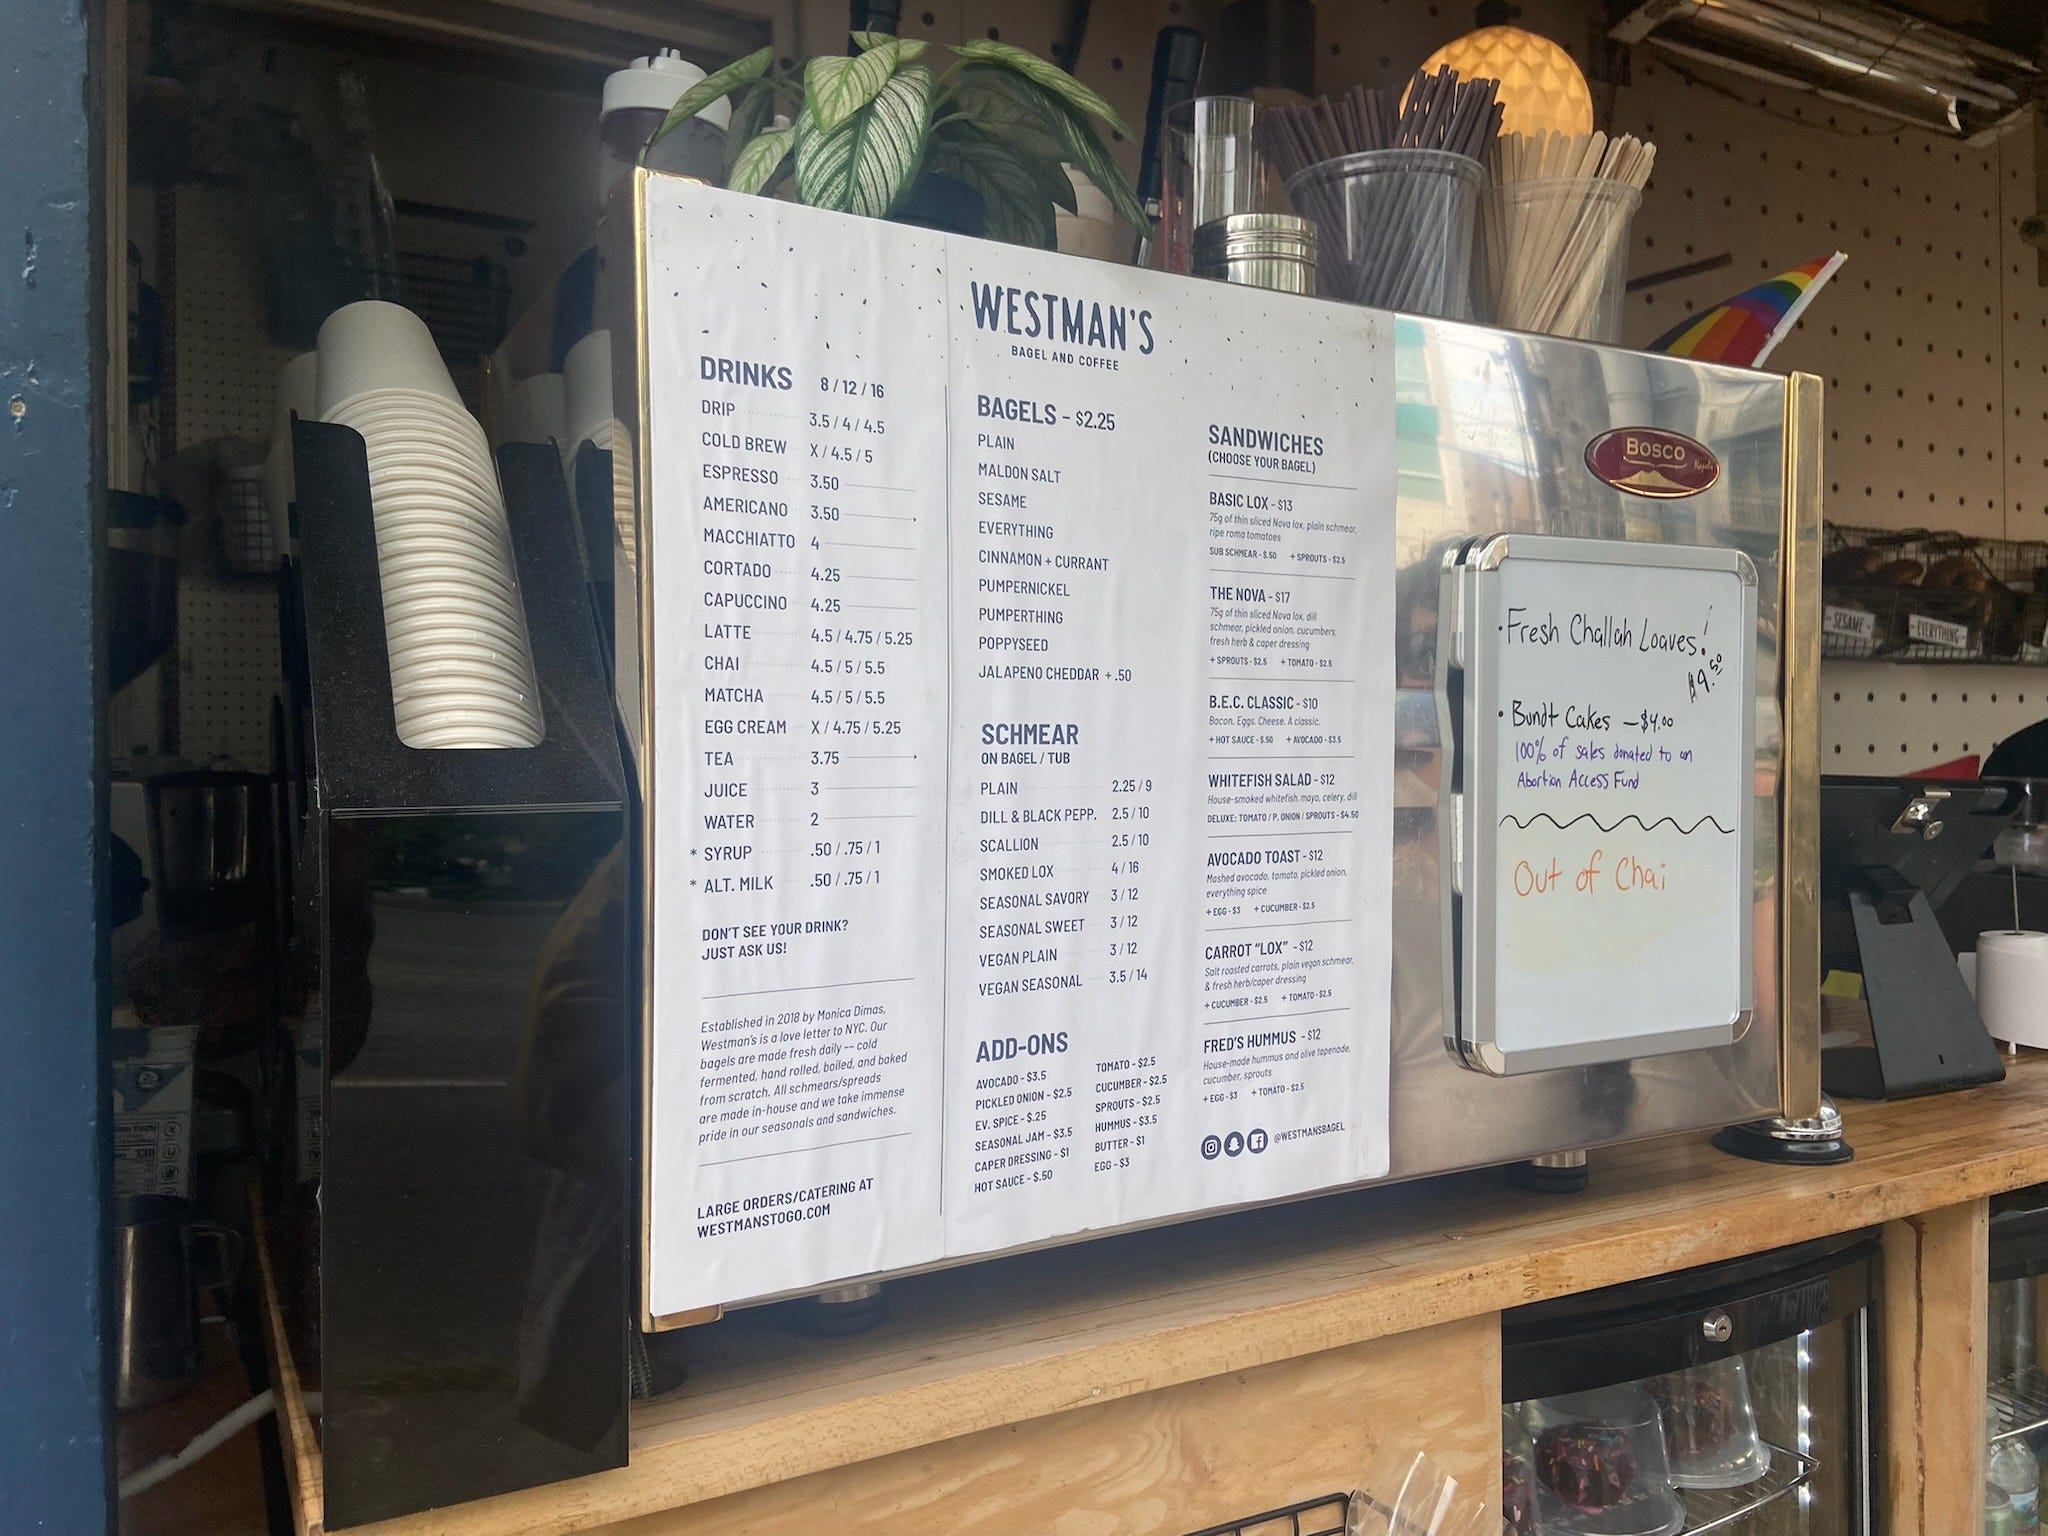 DRINKS 8 / 12 / 16
DRIP 3.5 / 4 / 4.5
COLD BREW X / 4.5 / 5
ESPRESSO 3.50
AMERICANO 3.50
MACCHIATTO 4
CORTADO 4.25
CAPUCCINO 4.25
LATTE 4.5 / 4.75 / 5.25
CHAI 4.5 / 5 / 5.5
MATCHA 4.5 / 5 / 5.5
EGG CREAM X / 4.75 / 5.25
TEA 3.75
JUICE 3
WATER 2
* SYRUP .50 / .75 / 1
* ALT. MILK .50 / .75 / 1
DON'T SEE YOUR DRINK?
JUST ASK US!
Established in 2018 by Monica Dimas,
Westman's is a love letter to NYC. Our
bagels are made fresh daily -- cold
fermented, hand rolled, boiled, and baked
from scratch. All schmears/spreads
are made in-house and we take immense
pride in our seasonals and sandwiches.
LARGE ORDERS/CATERING AT
WESTMANSTOGO.COM
WESTMAN'S
BAGEL AND COFFEE
BAGELS - $2.25
PLAIN
MALDON SALT
SESAME
EVERYTHING
CINNAMON + CURRANT
PUMPERNICKEL
PUMPERTHING
POPPYSEED
JALAPENO CHEDDAR + .50
SCHMEAR
ON BAGEL / TUB
PLAIN 2.25 / 9
DILL & BLACK PEPP. 2.5 / 10
SCALLION 2.5 / 10
SMOKED LOX 4 / 16
SEASONAL SAVORY 3 / 12
SEASONAL SWEET 3 / 12
VEGAN PLAIN 3 / 12
VEGAN SEASONAL 3.5 / 14
ADD-ONS
AVOCADO - $3.5
PICKLED ONION - $2.5
EV. SPICE - $.25
SEASONAL JAM - $3.5
CAPER DRESSING - $1
HOT SAUCE - $.50
TOMATO - $2.5
CUCUMBER - $2.5
SPROUTS - $2.5
HUMMUS - $3.5
BUTTER - $1
EGG - $3
SANDWICHES
(CHOOSE YOUR BAGEL)
BASIC LOX - $13
75g of thin sliced Nova lox, plain schmear,
ripe roma tomatoes
SUB SCHMEAR - $.50 + SPROUTS - $2.5
THE NOVA - $17
75g of thin sliced Nova lox, dill
schmear, pickled onion, cucumbers,
fresh herb & caper dressing
+ SPROUTS - $2.5 + TOMATO - $2.5
B.E.C. CLASSIC - $10
Bacon. Eggs. Cheese. A classic.
+ HOT SAUCE - $.50 + AVOCADO - $3.5
WHITEFISH SALAD - $12
House-smoked whitefish, mayo, celery, dill
DELUXE: TOMATO / P. ONION / SPROUTS - $4.50
AVOCADO TOAST - $12
Mashed avocado, tomato, pickled onion,
everything spice
+ EGG - $3 + CUCUMBER - $2.5
CARROT "LOX" - $12
Salt roasted carrots, plain vegan schmear,
& fresh herb/caper dressing
+ CUCUMBER - $2.5 + TOMATO - $2.5
FRED'S HUMMUS - $12
House-made hummus and olive tapenade,
cucumber, sprouts
+ EGG - $3 + TOMATO - $2.5
@WESTMANSBAGEL
BOSCO
Napoli
• Fresh Challah Loaves!
$9.50
• Bundt Cakes - $4.00
100% of sales donated to an
Abortion Access Fund
Out of Chai
SESAME
EVERYTHING